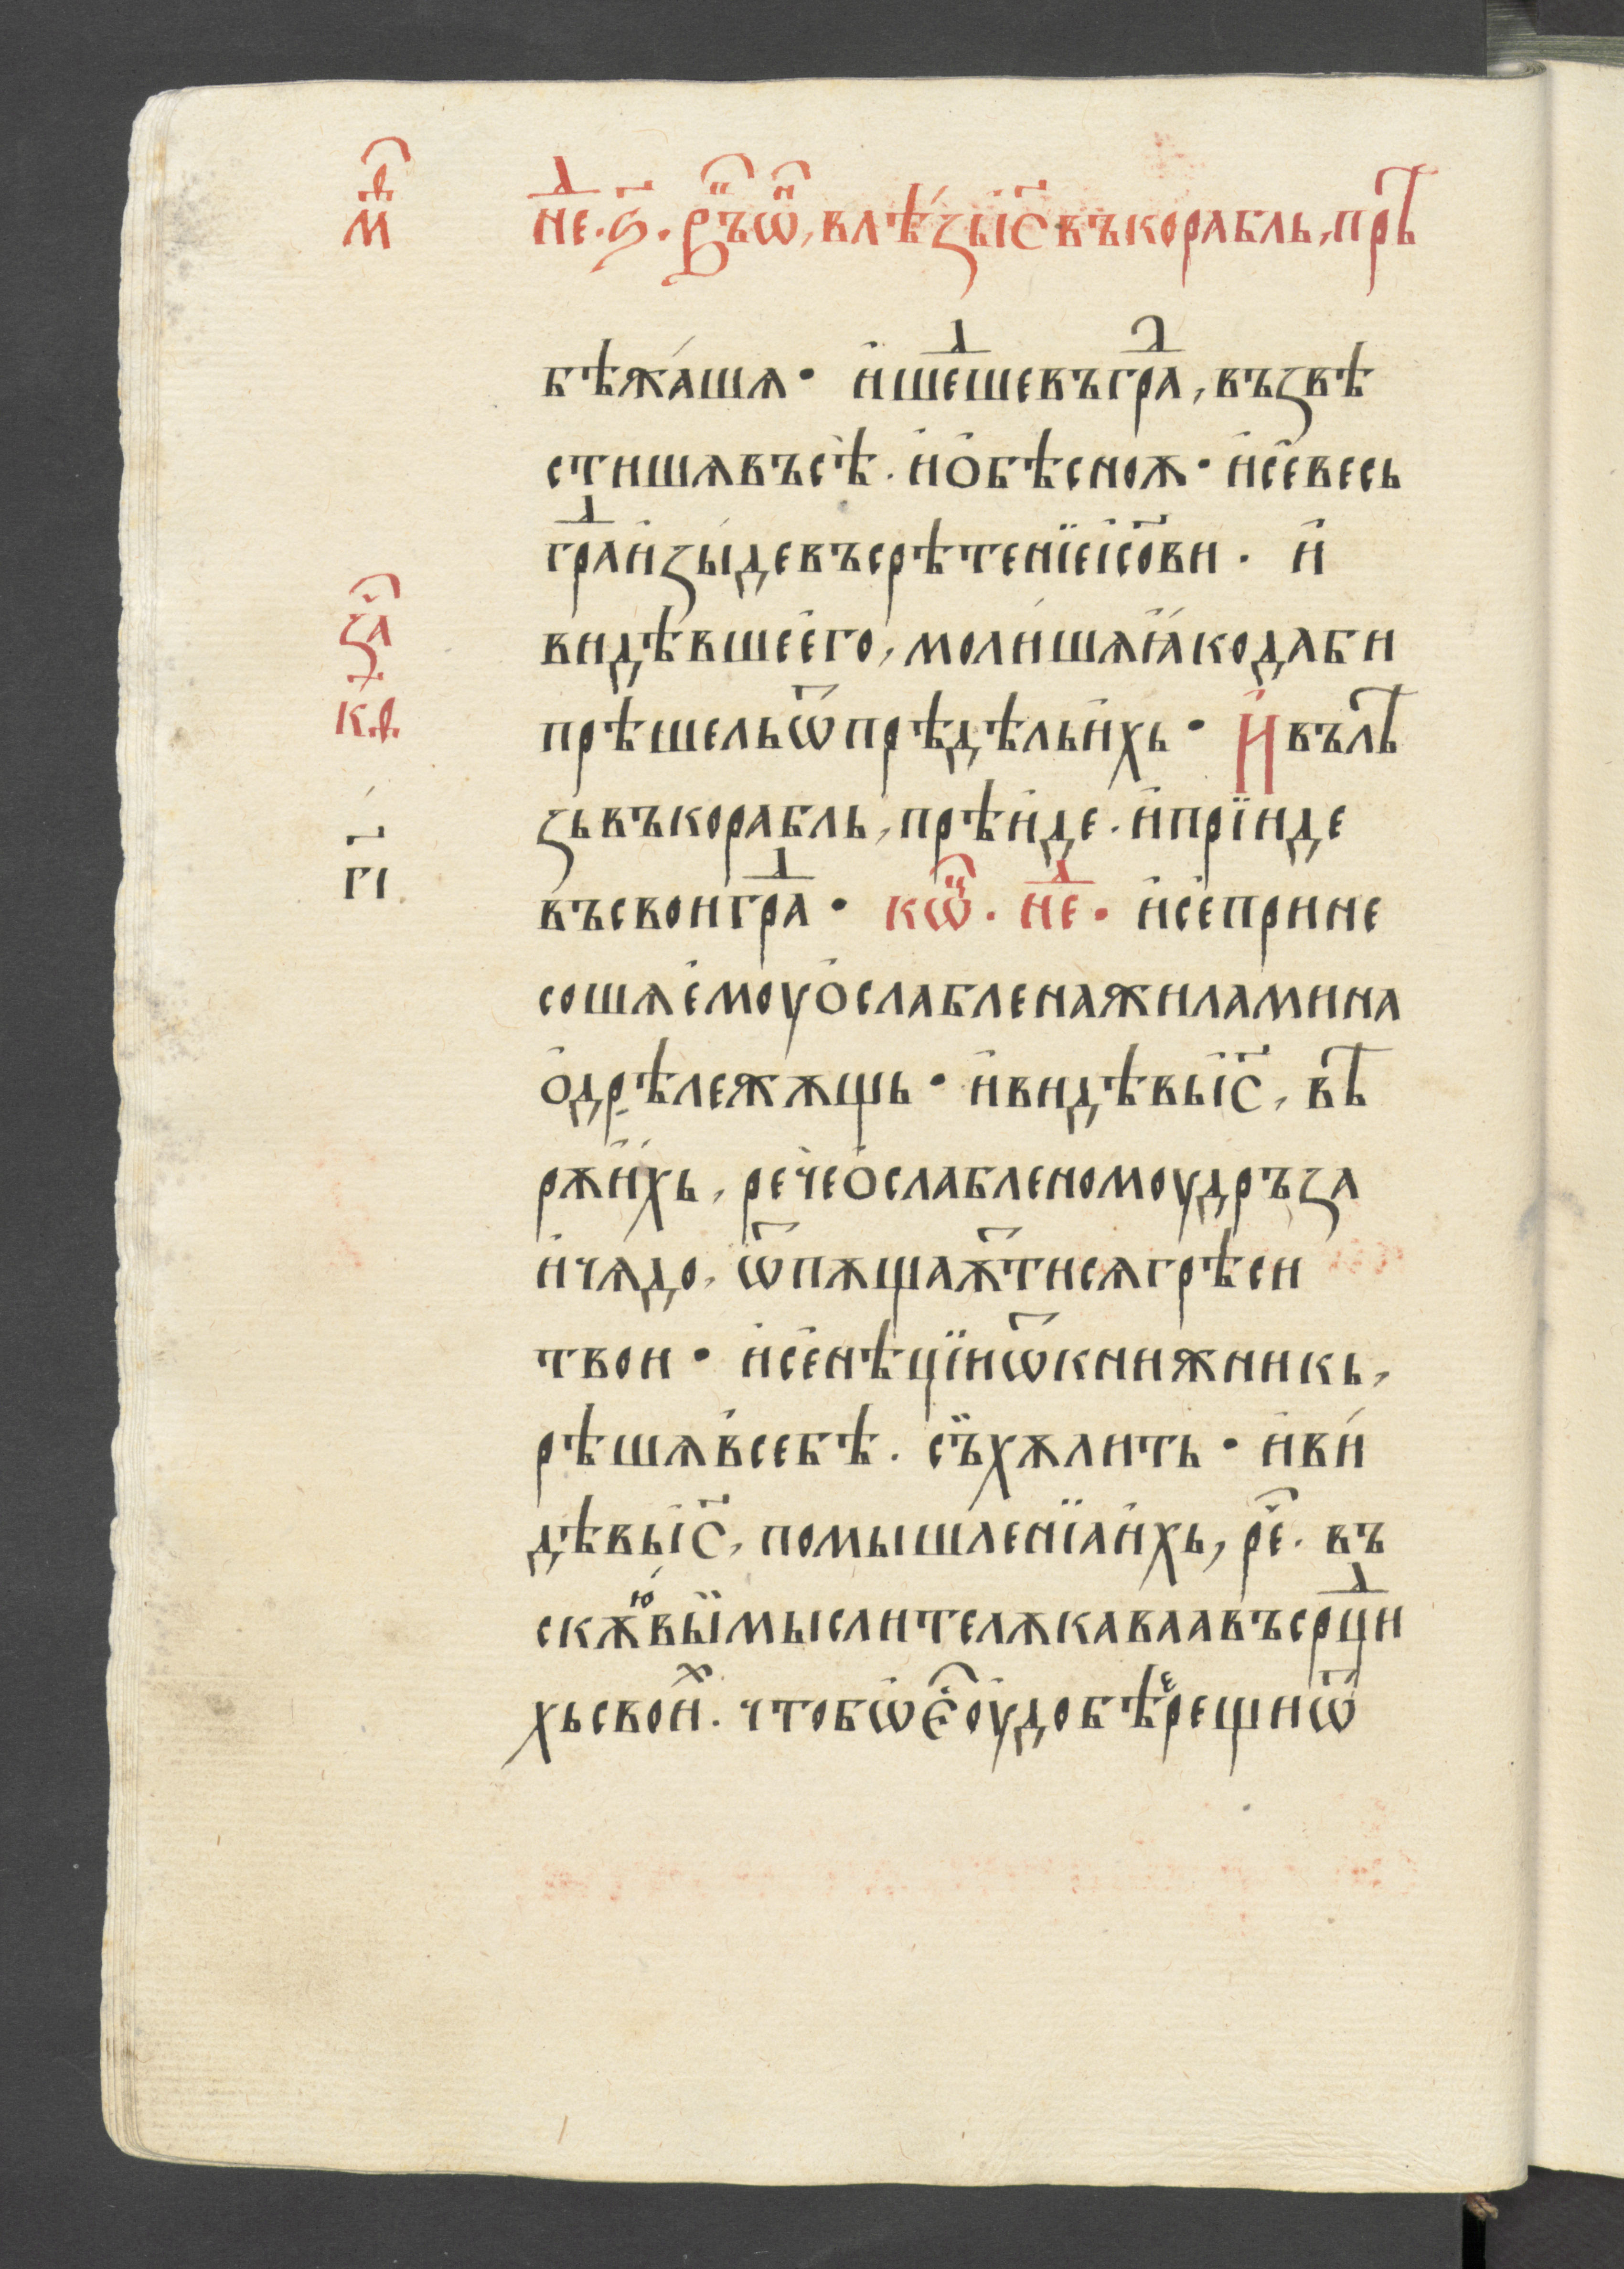 м҃ѳ
не҃д. ѕ҃. въ ѡ҃н, влѣ́зы і҃с въ корабль, прѣ
бѣжа́шѧ • и҆ шешеⷣ въ граⷣ, възвѣ
стишѧ въсѣ̀. и҆ ѻ҆ бѣсноѫ • и҆ се̏ весь
граⷣ и҆зы́де въ срѣтенїе і҆с҃ови. и҆
видѣвше е҆го, моли́шѧ ꙗ҆́ко да би
прѣшель ѿ прѣдѣль и҆хь • И҆ вълѣ
зь въ корабль, прѣи҆де. и҆ прїиде
въ свои граⷣ • кѡⷰ҇. неⷣ • и҆ се̏ прине
сошѧ е҆моу ѻ҆слаблена жилами на
ѻ҆дрѣ лежѫщь • и҆ видѣвь і҆с҃, вѣ
рѫ и҆́хь, ре́че ѻ҆слабленомоу дръза
и҆ чѧдо, ѿпѫщаѫⷮ ти сѧ грѣси
твои • и҆ се̏ нѣцїи ѿ книжникь,
рѣшѧ в себѣ. съ̏ хѫлить • и҆ ви́
дѣвь і҆с҃, помышленїа и҆хь, ре҃. въ
скѫю вы̏ мыслите лѫкаваа въ срⷣци
хь своиⷯ. что бѡ е҆с҃ оу҆добѣе рещи ѿ
за҃ч
к҃ѳ
г҃і